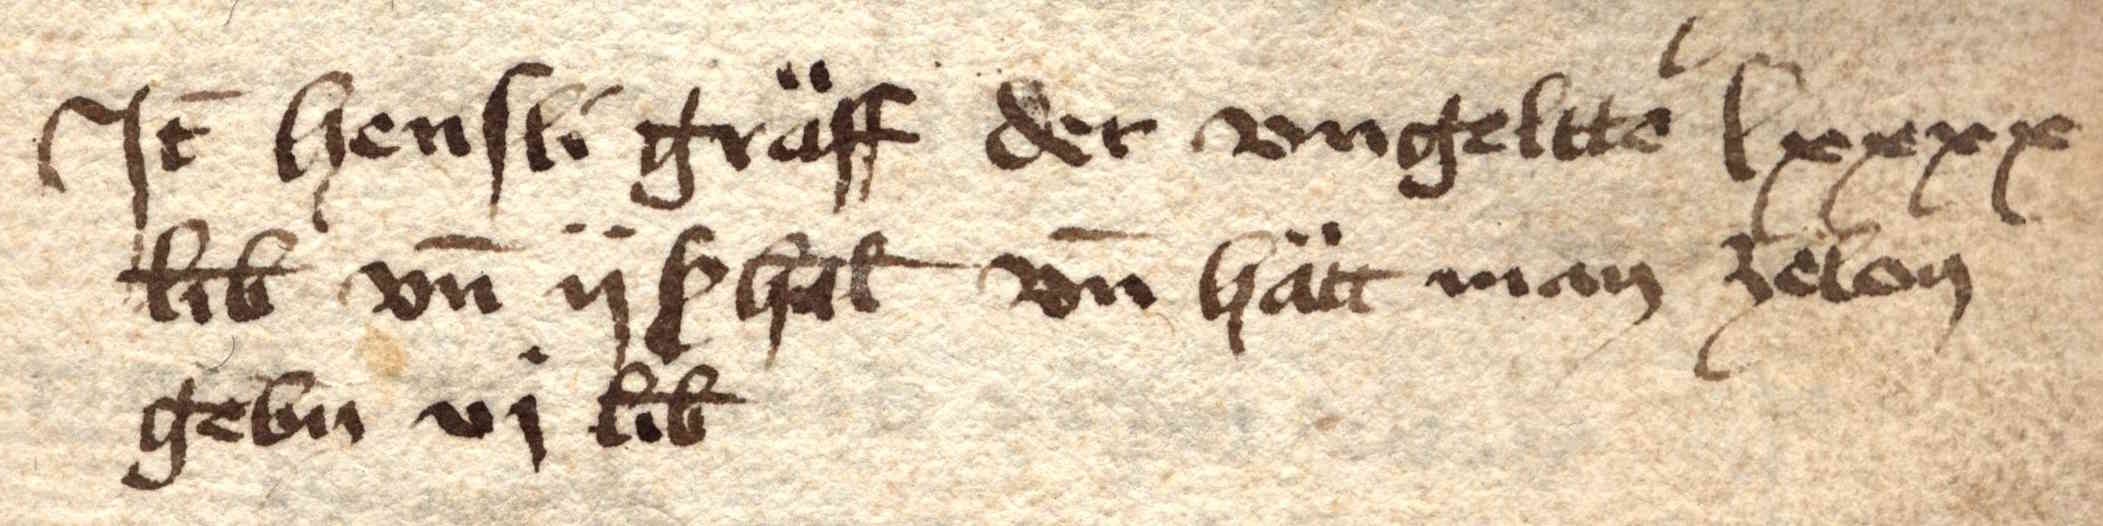 It̄ hensli gräff der vngeltte᷑ lxxxx
lib vn̄ ij ß hal vn̄ hätt man zelon
gebn vj lib